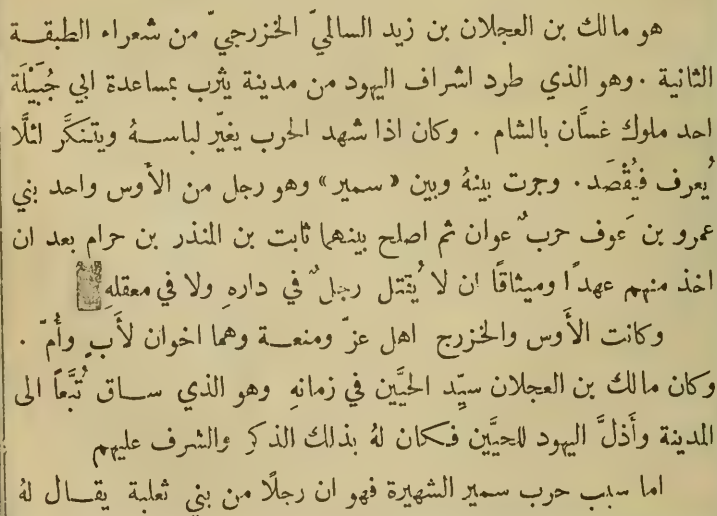 هو مالك بن العجلان بن زيد السالميّ الخزرجيّ من شعراء الطبقـة
الثانية . وهو الذي طرد اشراف اليهود من مدينة يثرب بمساعدة ابي جُبَيْلَة
احد ملوك غسَّان بالشام . وكان اذا شهد الحرب يغيّر لباســهُ ويتنكَّر لئلَّا
يُعرف فيُقْصَد . وجرت بينهُ وبين « سمير » وهو رجل من الأَوس واحد بني
عمرو بن عَوف حربٌ عوان ثم اصلح بينهما ثابت بن المنذر بن حرام بعد ان
اخذ منهم عهدًا وميثاقًا ان لا يُقتل رجلٌ في دارهِ ولا في معقلهِ
وكانت الأَوس والخزرج اهل عزّ ومنعــة وهما اخوان لأَبٍ وأُمّ .
وكان مالك بن العجلان سيّد الحيَّين في زمانهِ وهو الذي ســاق تُبَّعًا الى
المدينة وأَذلَّ اليهود للحيَّين فـكان لهُ بذلك الذكر والشرف عليهم
اما سبب حرب سمير الشهيرة فهو ان رجلًا من بني ثعلبة يقــال لهُ